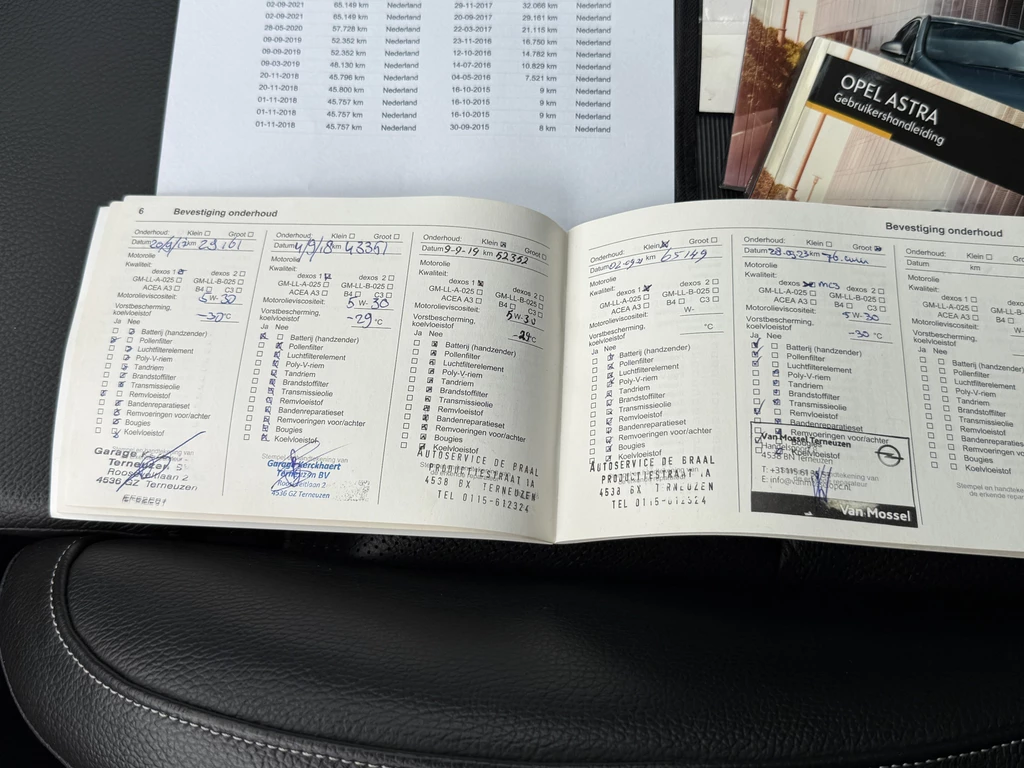 02-09-2021 65.149 km Nederland 29-11-2017 32.066 km Nederland
02-09-2021 65.149 km Nederland 20-09-2017 29.161 km Nederland
28-05-2020 57.728 km Nederland 22-03-2017 21.115 km Nederland
09-09-2019 52.352 km Nederland 23-11-2016 16.750 km Nederland
09-09-2019 52.352 km Nederland 12-10-2016 14.782 km Nederland
09-03-2019 48.130 km Nederland 14-07-2016 10.829 km Nederland
20-11-2018 45.796 km Nederland 04-05-2016 7.521 km Nederland
20-11-2018 45.800 km Nederland 16-10-2015 9 km Nederland
01-11-2018 45.757 km Nederland 16-10-2015 9 km Nederland
01-11-2018 45.757 km Nederland 16-10-2015 9 km Nederland
01-11-2018 45.757 km Nederland 30-09-2015 8 km Nederland
OPEL ASTRA
Gebruikershandleiding
6 Bevestiging onderhoud
Onderhoud: Klein Groot
Datum 20/9/17 km 29161
Motorolie
Kwaliteit:
dexos 1 dexos 2
GM-LL-A-025 GM-LL-B-025
ACEA A3 B4 C3
Motorolieviscositeit: 5 W- 30
Vorstbescherming,
koelvloeistof -30 °C
Ja Nee
Batterij (handzender)
Pollenfilter
Luchtfilterelement
Poly-V-riem
Tandriem
Brandstoffilter
Transmissieolie
Remvloeistof
Bandenreparatieset
Remvoeringen voor/achter
Bougies
Koelvloeistof
Terneuzen
4536 GZ Terneuzen
Onderhoud: Klein Groot
Datum 4/9/18 km 43351
Motorolie
Kwaliteit:
dexos 1 dexos 2
GM-LL-A-025 GM-LL-B-025
ACEA A3 B4 C3
Motorolieviscositeit: 5 W- 30
Vorstbescherming,
koelvloeistof -29 °C
Ja Nee
Batterij (handzender)
Pollenfilter
Luchtfilterelement
Poly-V-riem
Tandriem
Brandstoffilter
Transmissieolie
Remvloeistof
Bandenreparatieset
Remvoeringen voor/achter
Bougies
Koelvloeistof
Terneuzen BV
4536 GZ Terneuzen
Onderhoud: Klein Groot
Datum 9-9-19 km 52352
Motorolie
Kwaliteit:
dexos 1 dexos 2
GM-LL-A-025 GM-LL-B-025
ACEA A3 B4 C3
Motorolieviscositeit: 5 W- 30
Vorstbescherming,
koelvloeistof -24 °C
Ja Nee
Batterij (handzender)
Pollenfilter
Luchtfilterelement
Poly-V-riem
Tandriem
Brandstoffilter
Transmissieolie
Remvloeistof
Bandenreparatieset
Remvoeringen voor/achter
Bougies
Koelvloeistof
AUTOSERVICE DE BRAAL
PRODUCTIESTRAAT 1A
4538 BX TERNEUZEN
TEL 0115-612324
Bevestiging onderhoud
Onderhoud: Klein Groot
Datum 02-09-21 km 65149
Motorolie
Kwaliteit: dexos 1 dexos 2
GM-LL-A-025 GM-LL-B-025
ACEA A3 B4 C3
Motorolieviscositeit: W-
Vorstbescherming,
koelvloeistof °C
Ja Nee
Batterij (handzender)
Pollenfilter
Luchtfilterelement
Poly-V-riem
Tandriem
Brandstoffilter
Transmissieolie
Remvloeistof
Bandenreparatieset
Remvoeringen voor/achter
Bougies
Koelvloeistof
AUTOSERVICE DE BRAAL
PRODUCTIESTRAAT 1A
4538 BX TERNEUZEN
TEL 0115-612324
Onderhoud: Klein Groot
Motorolie
Kwaliteit:
GM-LL-A-025 GM-LL-B-025
ACEA A3 B4 C3
Motorolieviscositeit: 5 W- 30
Vorstbescherming,
koelvloeistof -30 °C
Ja Nee
Batterij (handzender)
Pollenfilter
Luchtfilterelement
Poly-V-riem
Tandriem
Brandstoffilter
Transmissieolie
Remvloeistof
Bandenreparatieset
Remvoeringen voor/achter
Bougies
Koelvloeistof
Van Mossel Terneuzen
4538 BN Terneuzen
Van Mossel
Onderhoud: Klein
Datum km
Motorolie
Kwaliteit:
dexos 1
GM-LL-A-025
ACEA A3
Motorolieviscositeit:
Vorstbescherming,
koelvloeistof
Ja Nee
Batterij (handzender)
Pollenfilter
Luchtfilterelement
Poly-V-riem
Tandriem
Brandstoffilter
Transmissieolie
Remvloeistof
Bougies
Koelvloeistof